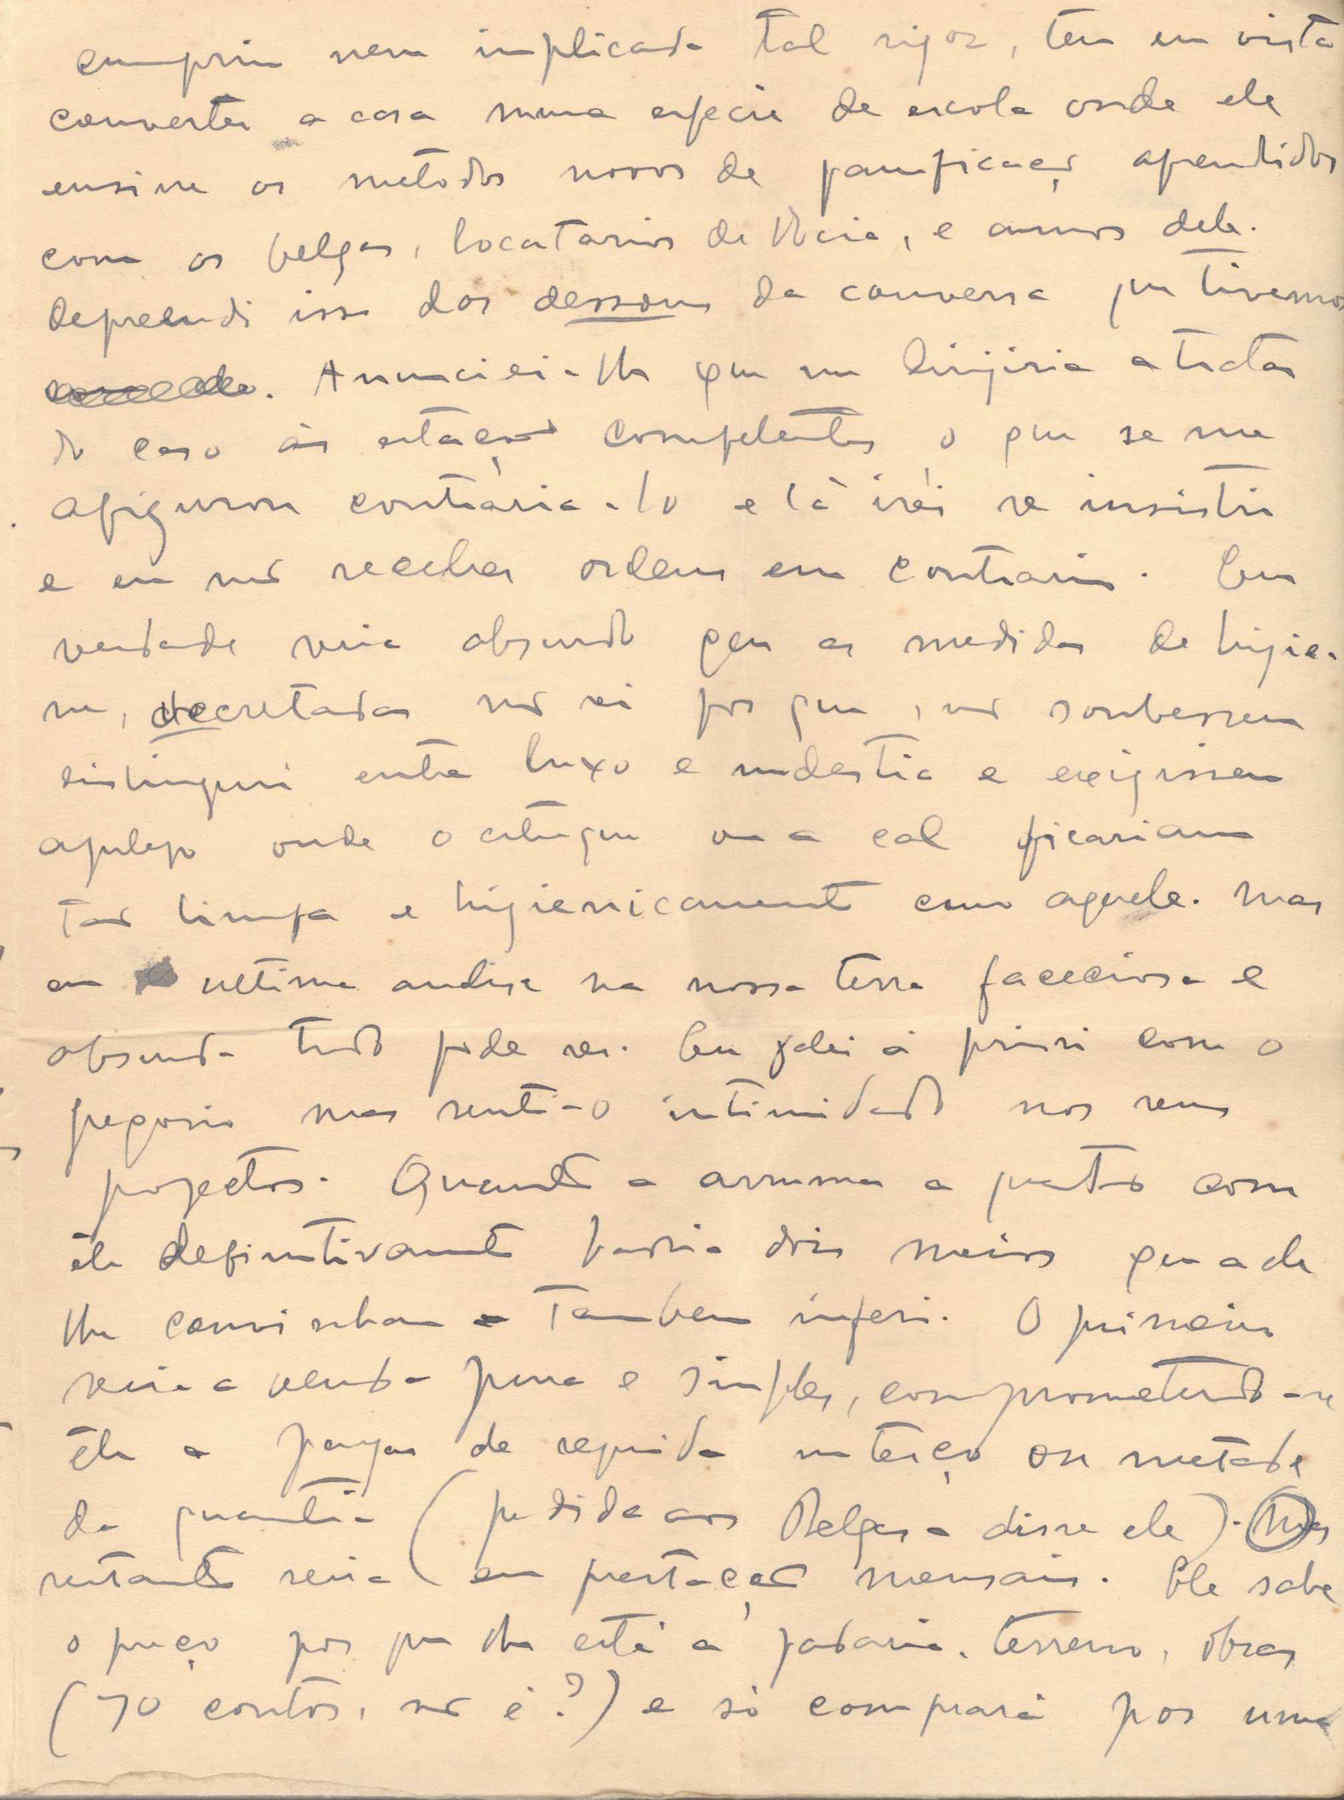 cumprir nem implicada tal rigor, tem em vista
converter a casa numa especie de escola onde ele
ensine os metodos novos de panificação aprendidos
com os belgas, locatarios de              , e           dele.
depreendi isso dos dessous da conversa que tivemos
Anunciei-lhe que me dirijiria a tratar
do caso ás estações competentes o que se me
afigurou contraria-lo e lá irei se insistir
e eu não receber ordem em contrario. Em
verdade seria absurdo que as medidas de higie-
ne, decretadas não sei por que, não soubessem
distinguir entre luxo e modestia e exigissem
azulejo onde o estuque ou a cal ficariam
tão limpa e higienicamente como aquele. Mas
em ultima analise na nossa terra faceciosa e
absurda tudo pode ser. Eu        á priori com o
         mas senti-o intimidado nos seus
projectos. Quanto a arrumar a questão com
êle definitivamente haveria dois meios que a ele
lhe convinham e tambem inferi. O primeiro
seria a venda pura e simples, comprometendo-se
êle a pagar de seguida um terço ou metade
da quantia (pedida aos Belgas - disse ele). Mas
restante seria em prestações mensais. Ele sabe
o preço por que lhe está a padaria, terreno, obras
(70 contos, não é?) e só comprará por uma